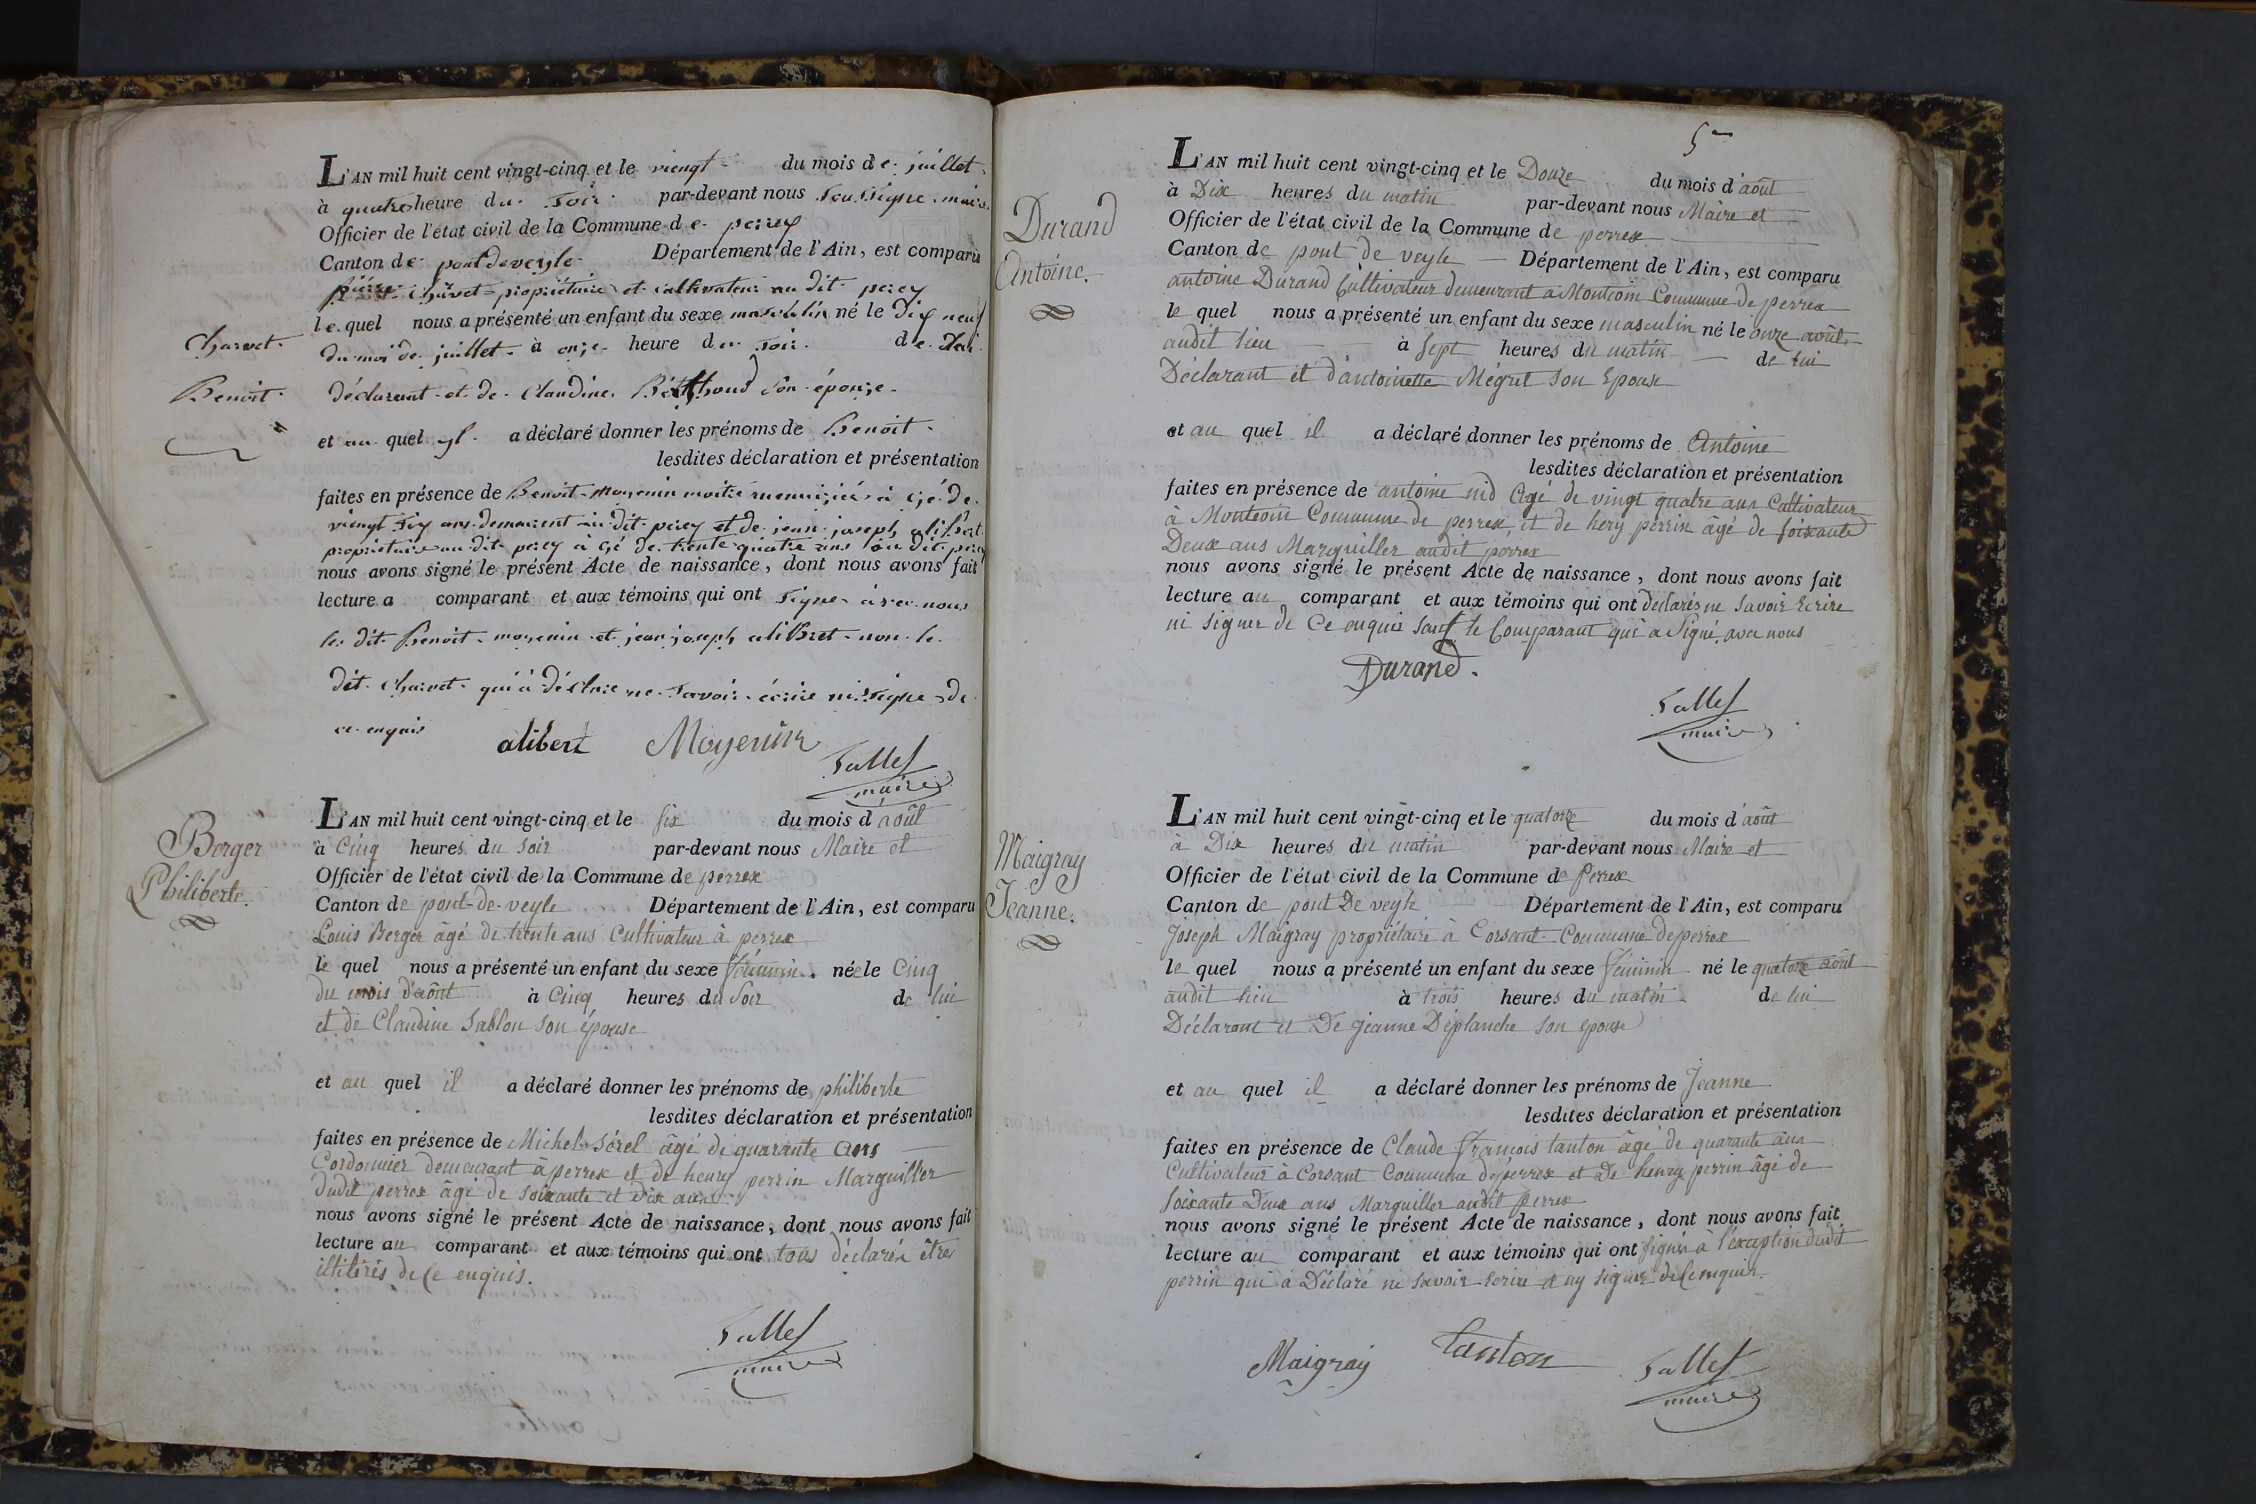 Charvet
Benoit
L'AN mil huit cent vingt-cinq et le viengt du mois de juillet
à quatre heure du soir par-devant nous soussigne maire
Officier de l'état civil de la Commune de perrey
Canton de pont de veyle Département de l'Ain, est comparu
pierre Charvet propriétaire et cultivateur au dit perey
le quel nous a présenté un enfant du sexe masculin né le dix neuf
du moi de juillet à onze heure du soir de
déclarent et de Claudine son épouze
et au quel yl a déclaré donner les prénoms de Benoit
lesdites déclaration et présentation
faites en présence de Benoit moyenin maitre menuizié à gé de
viengt six ans demeurent au dit perey et de jean joseph alibert
propriétaire au dit perey à gé de trente quatre ans au dit perey
nous avons signé le présent Acte de naissance, dont nous avons fait
lecture a comparant et aux témoins qui ont signe avec nous
les dit Benoit moyenin et jean joseph non le
dit Charvet qui à déclare ne savoir écrire ni signe de
ce enquis
alibert Moyenin
Salles
maire
Berger
Philiberte
L'AN mil huit cent vingt-cinq et le six du mois d'août
à Cinq heures du soir par-devant nous Maire et
Officier de l'état civil de la Commune de perrex
Canton de pont-de-veyle Département de l'Ain, est comparu
Louis Berger âgé de trente ans Cultivateur à perrex
le quel nous a présenté un enfant du sexe féminin née le Cinq
du mois d'août à Cinq heures du Soir de lui
et de Claudine Sablon son épouse
et au quel il a déclaré donner les prénoms de philiberte
lesdites déclaration et présentation
faites en présence de Michel Sérel âgé de quarante ans
Cordonnier demeurant à perrex et de henry perrin Marguiller
dudit perrex âgé de soixante et dix ans
nous avons signé le présent Acte de naissance, dont nous avons fait
lecture au comparant et aux témoins qui ont tous déclarés être
illitirés de Ce enquis.
Salles
maire
5
Durand
Antoine.
L'AN mil huit cent vingt-cinq et le Douze du mois d'août
à Dix heures du matin par-devant nous Maire et
Officier de l'état civil de la Commune de perrex
Canton de pont de veyle Département de l'Ain, est comparu
antoine Durand Cultivateur demeurant à Montcoin Commune de perrex
le quel nous a présenté un enfant du sexe masculin né le onze août
audit lieu à sept heures du matin de lui
Déclarant et d'antoinette Mégret son Epouse
et au quel il a déclaré donner les prénoms de Antoine
lesdites déclaration et présentation
faites en présence de antoine nid Agé de vingt quatre ans Cultivateur
à Montcoin Commune de perrex et de hery perrin âgé de soixante
Deux ans Marguiller audit perrex
nous avons signé le présent Acte de naissance, dont nous avons fait
lecture au comparant et aux témoins qui ont déclarés ne savoir Ecrire
ni signer de Ce enquis sauf le Comparant qui a Signé avec nous
Durand.
Salles
maire
Maigray
Jeanne.
L'AN mil huit cent vingt-cinq et le quatorze du mois d'août
à Dix heures du matin par-devant nous Maire et
Officier de l'état civil de la Commune de Perrex
Canton de pont De veyle Département de l'Ain, est comparu
Joseph Maigray propriétaire à Corsant Commune de perrex
le quel nous a présenté un enfant du sexe féminin né le quatorze août
audit lieu à trois heures du matin de lui
Déclarant et De Jeanne Déplanche son epouse
et au quel il a déclaré donner les prénoms de Jeanne
lesdites déclaration et présentation
faites en présence de Claude François tanton âgé de quarante ans
Cultivateur à Corsant Commune de perrex et De henry perrin âgé de
soixante Deux ans Marguiller audit perrex
nous avons signé le présent Acte de naissance, dont nous avons fait
lecture au comparant et aux témoins qui ont signés à l'exception dudit
perrin qui à Déclaré ne savoir Ecrire et ny signer de Ce enquis.
Maigray Tanton Salles
maire